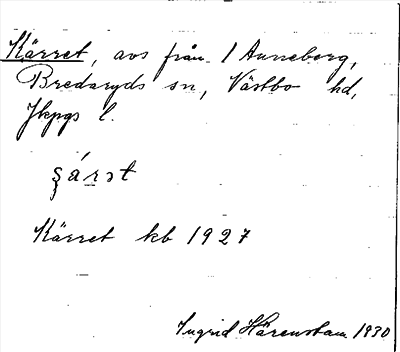 Kärret, avs från 1 Anneberg,
Bredaryds sn, Västbo hd,
Jkpgs l.
ʂárət
Kärret kb 1927
Ingrid Härenstam 1930